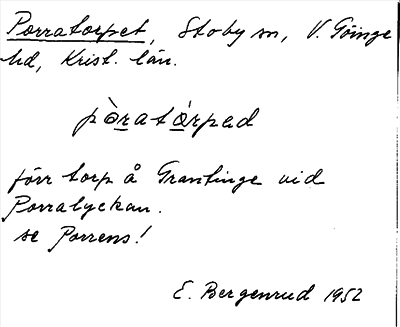 Porratorpet, Stoby sn, V. Göinge
hd, Krist. län.
pòratȯrpad
förr torp å Grantinge vid
Porralyckan.
se Porrens!
E. Bergenrud 1952